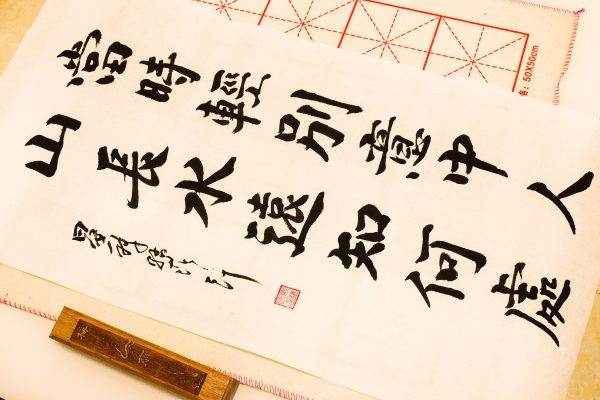 當時輕別意中人
山長水遠知何處
50X50cm